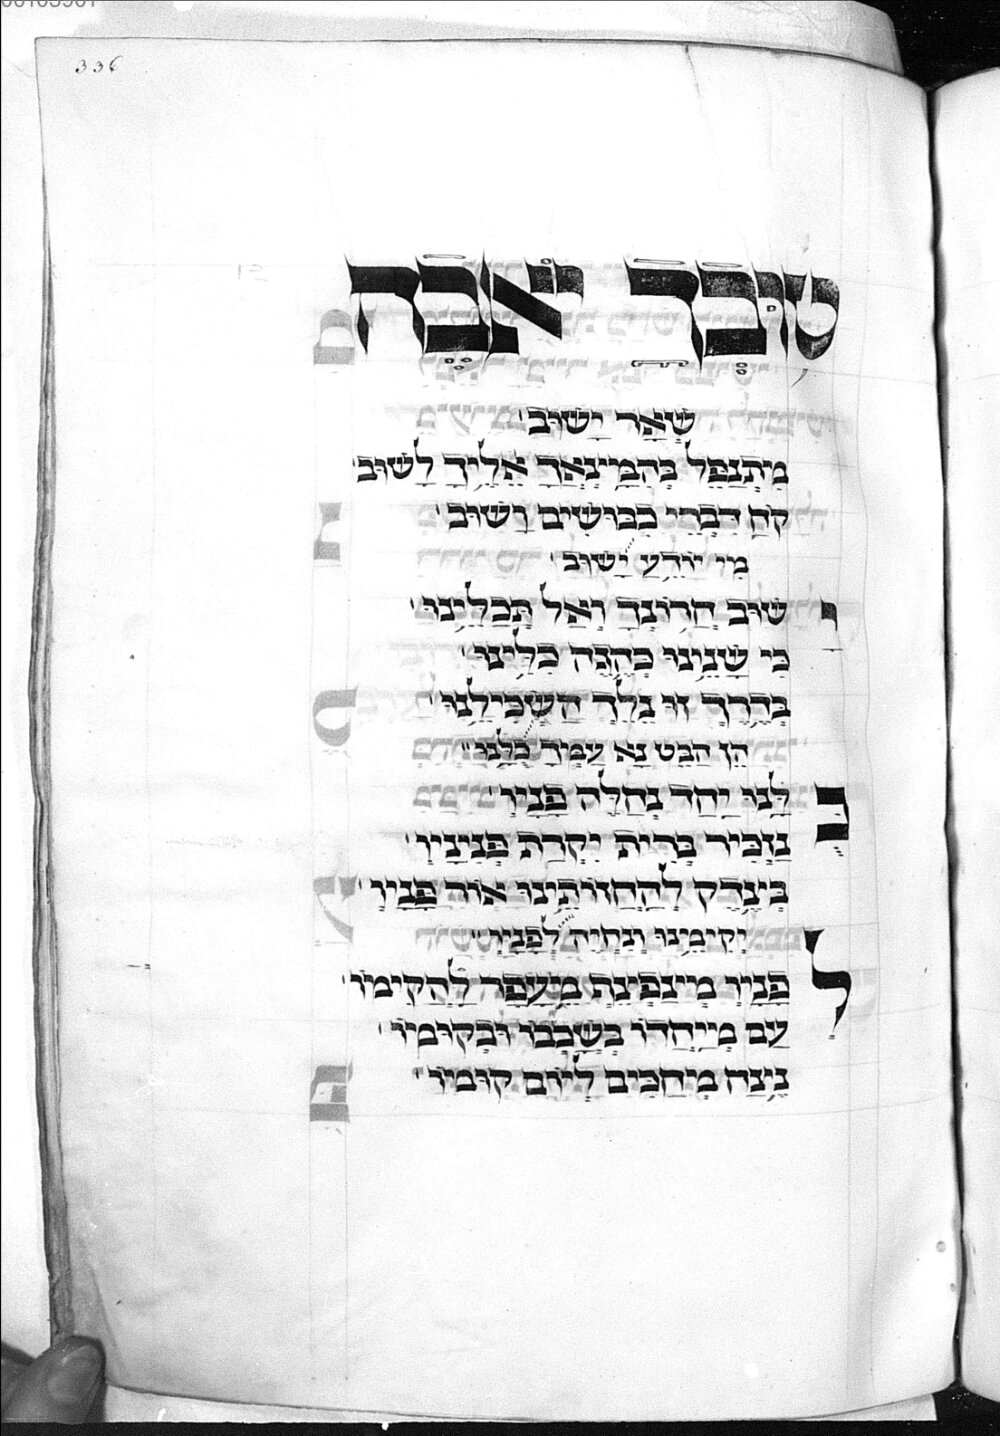 336
טוּבְךָ אֹבֶה
שְׁאָר יָשׁוּב׳
מִתְנַפֵּל בְּהַמְצִיאֲךָ אֵלֶיךָ לָשׁוּב׳
קַח דְּבָרַי כִּבּוּשִׁים וָשׁוּב׳
מִי יוֹדֵעַ יָשׁוּב׳
שׁוּב חֲרוֹנְךָ וְאַל תְּכַלֵּינוּ׳
ו
כִּי שָׁנֵינוּ כְּהֶגֶה כִּלִּינוּ׳
בְּדֶרֶךְ זוּ נֵלֵךְ הַשְׂכִּילֵנוּ׳
הֵן הַבֵּט נָא עַמְּךָ כֻלָּנוּ׳
כ
לָּנוּ יַחַד נְחַלֶּה פָנֶיךָ׳
נַזְכִּיר בְּרִית יִקְרַת פְּנִינֶיךָ׳
בְּצֶדֶק לְהַחֲזוֹתֵינוּ אוֹר פָּנֶיךָ׳
יְקִימֵינוּ וְנִחְיֶה לְפָנֶיךָ׳
ל
פָנֶיךָ מְצַפִּים מֵעָפָר לַהֲקִימוֹ׳
עַם מְיַחֲדוֹ בְּשָׁכְבוֹ וּבְקוּמוֹ׳
נֶצַח מְחַכִּים לְיוֹם קוּמוֹ׳